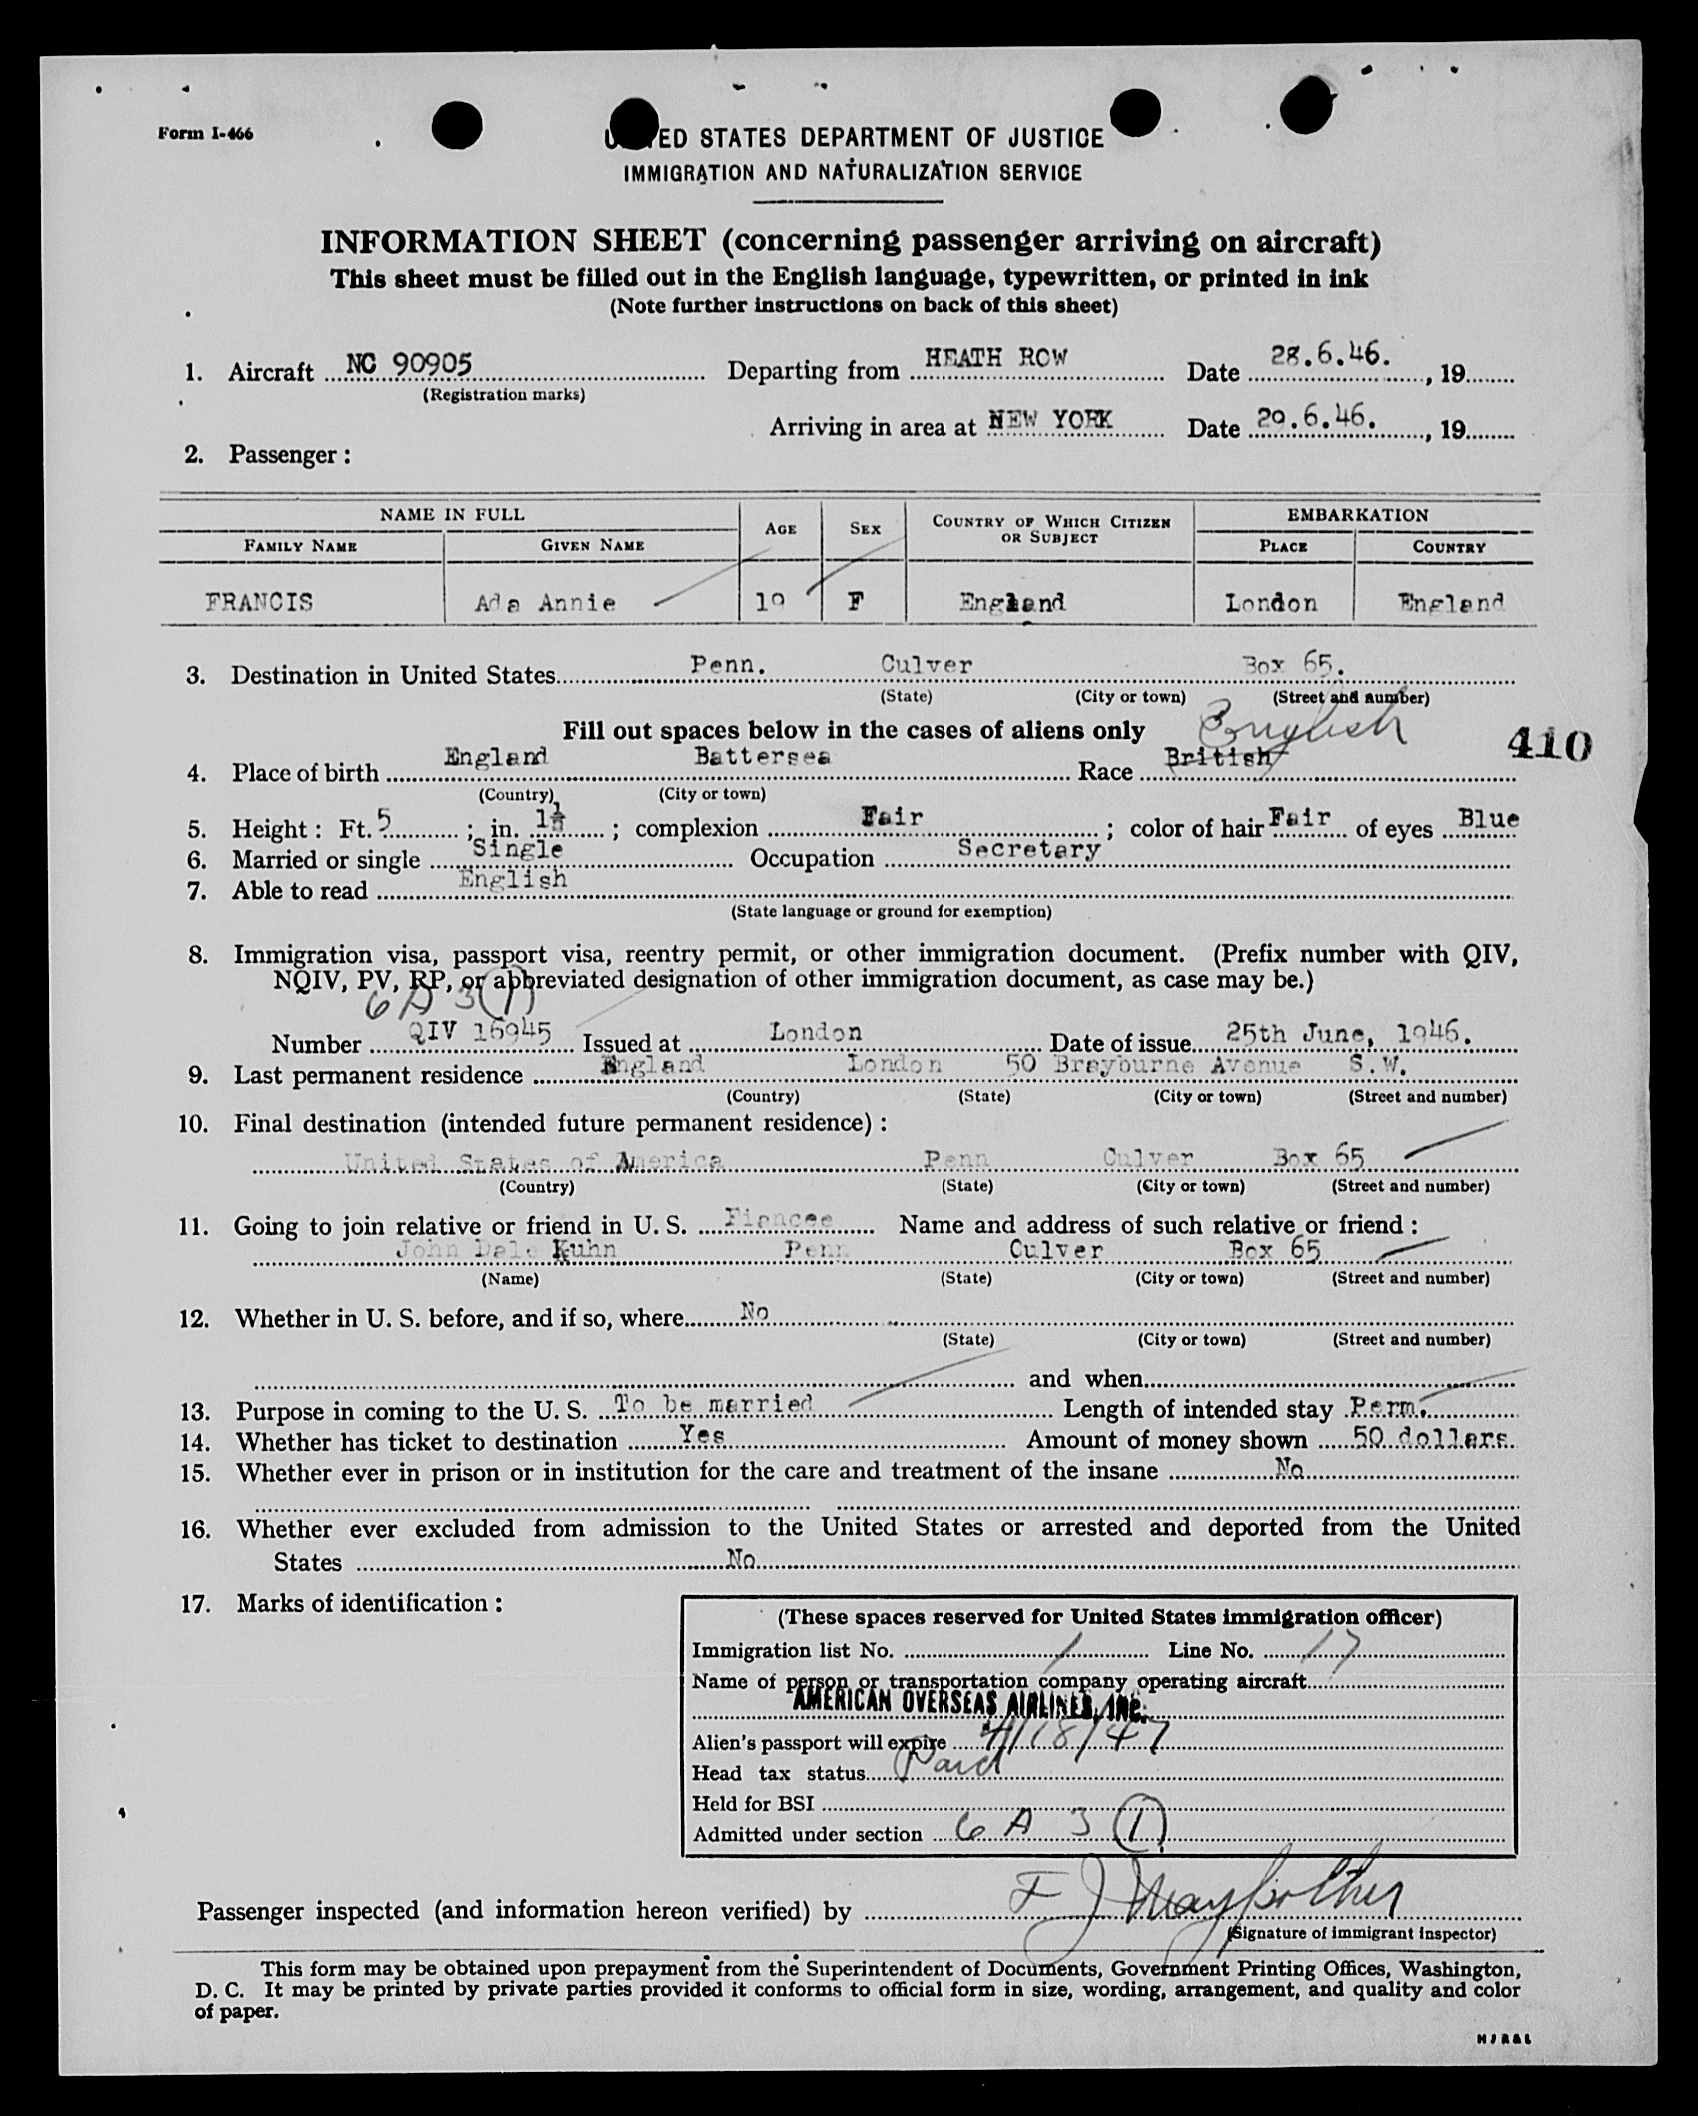 Form I-466
UNITED STATES DEPARTMENT OF JUSTICE
IMMIGRATION AND NATURALIZATION SERVICE
INFORMATION SHEET (concerning passenger arriving on aircraft)
This sheet must be filled out in the English language, typewritten, or printed in ink
(Note further instructions on back of this sheet)
1. Aircraft NC 90905 Departing from HEATH ROW Date 28.6.46. , 19
(Registration marks)
Arriving in area at NEW YORK Date 29.6.46. , 19
2. Passenger :
NAME IN FULL AGE SEX COUNTRY OF WHICH CITIZEN OR SUBJECT EMBARKATION
FAMILY NAME GIVEN NAME PLACE COUNTRY
FRANCIS Ada Annie 19 F England London England
3. Destination in United States Penn. Culver Box 65.
(State) (City or town) (Street and number)
Fill out spaces below in the cases of aliens only English 410
4. Place of birth England Battersea Race British
(Country) (City or town)
5. Height : Ft. 5 ; in. 1½ ; complexion Fair ; color of hair Fair of eyes Blue
6. Married or single Single Occupation Secretary
7. Able to read English
(State language or ground for exemption)
8. Immigration visa, passport visa, reentry permit, or other immigration document. (Prefix number with QIV,
NQIV, PV, RP, or abbreviated designation of other immigration document, as case may be.)
6 A 3 (1)
Number QIV 16945 Issued at London Date of issue 25th June, 1946.
9. Last permanent residence England London 50 Brayburne Avenue S.W.
(Country) (State) (City or town) (Street and number)
10. Final destination (intended future permanent residence) :
United States of America Penn Culver Box 65
(Country) (State) (City or town) (Street and number)
11. Going to join relative or friend in U. S. Fiancee Name and address of such relative or friend :
John Dale Kuhn Penn Culver Box 65
(Name) (State) (City or town) (Street and number)
12. Whether in U. S. before, and if so, where No
(State) (City or town) (Street and number)
and when
13. Purpose in coming to the U. S. To be married Length of intended stay Perm.
14. Whether has ticket to destination Yes Amount of money shown 50 dollars.
15. Whether ever in prison or in institution for the care and treatment of the insane No
16. Whether ever excluded from admission to the United States or arrested and deported from the United
States No
17. Marks of identification :
(These spaces reserved for United States immigration officer)
Immigration list No. 1 Line No. 17
Name of person or transportation company operating aircraft
AMERICAN OVERSEAS AIRLINES, INC.
Alien's passport will expire 4/18/47
Head tax status Paid
Held for BSI
Admitted under section 6 A 3 (1)
Passenger inspected (and information hereon verified) by F J
(Signature of immigrant inspector)
This form may be obtained upon prepayment from the Superintendent of Documents, Government Printing Offices, Washington,
D. C. It may be printed by private parties provided it conforms to official form in size, wording, arrangement, and quality and color
of paper.